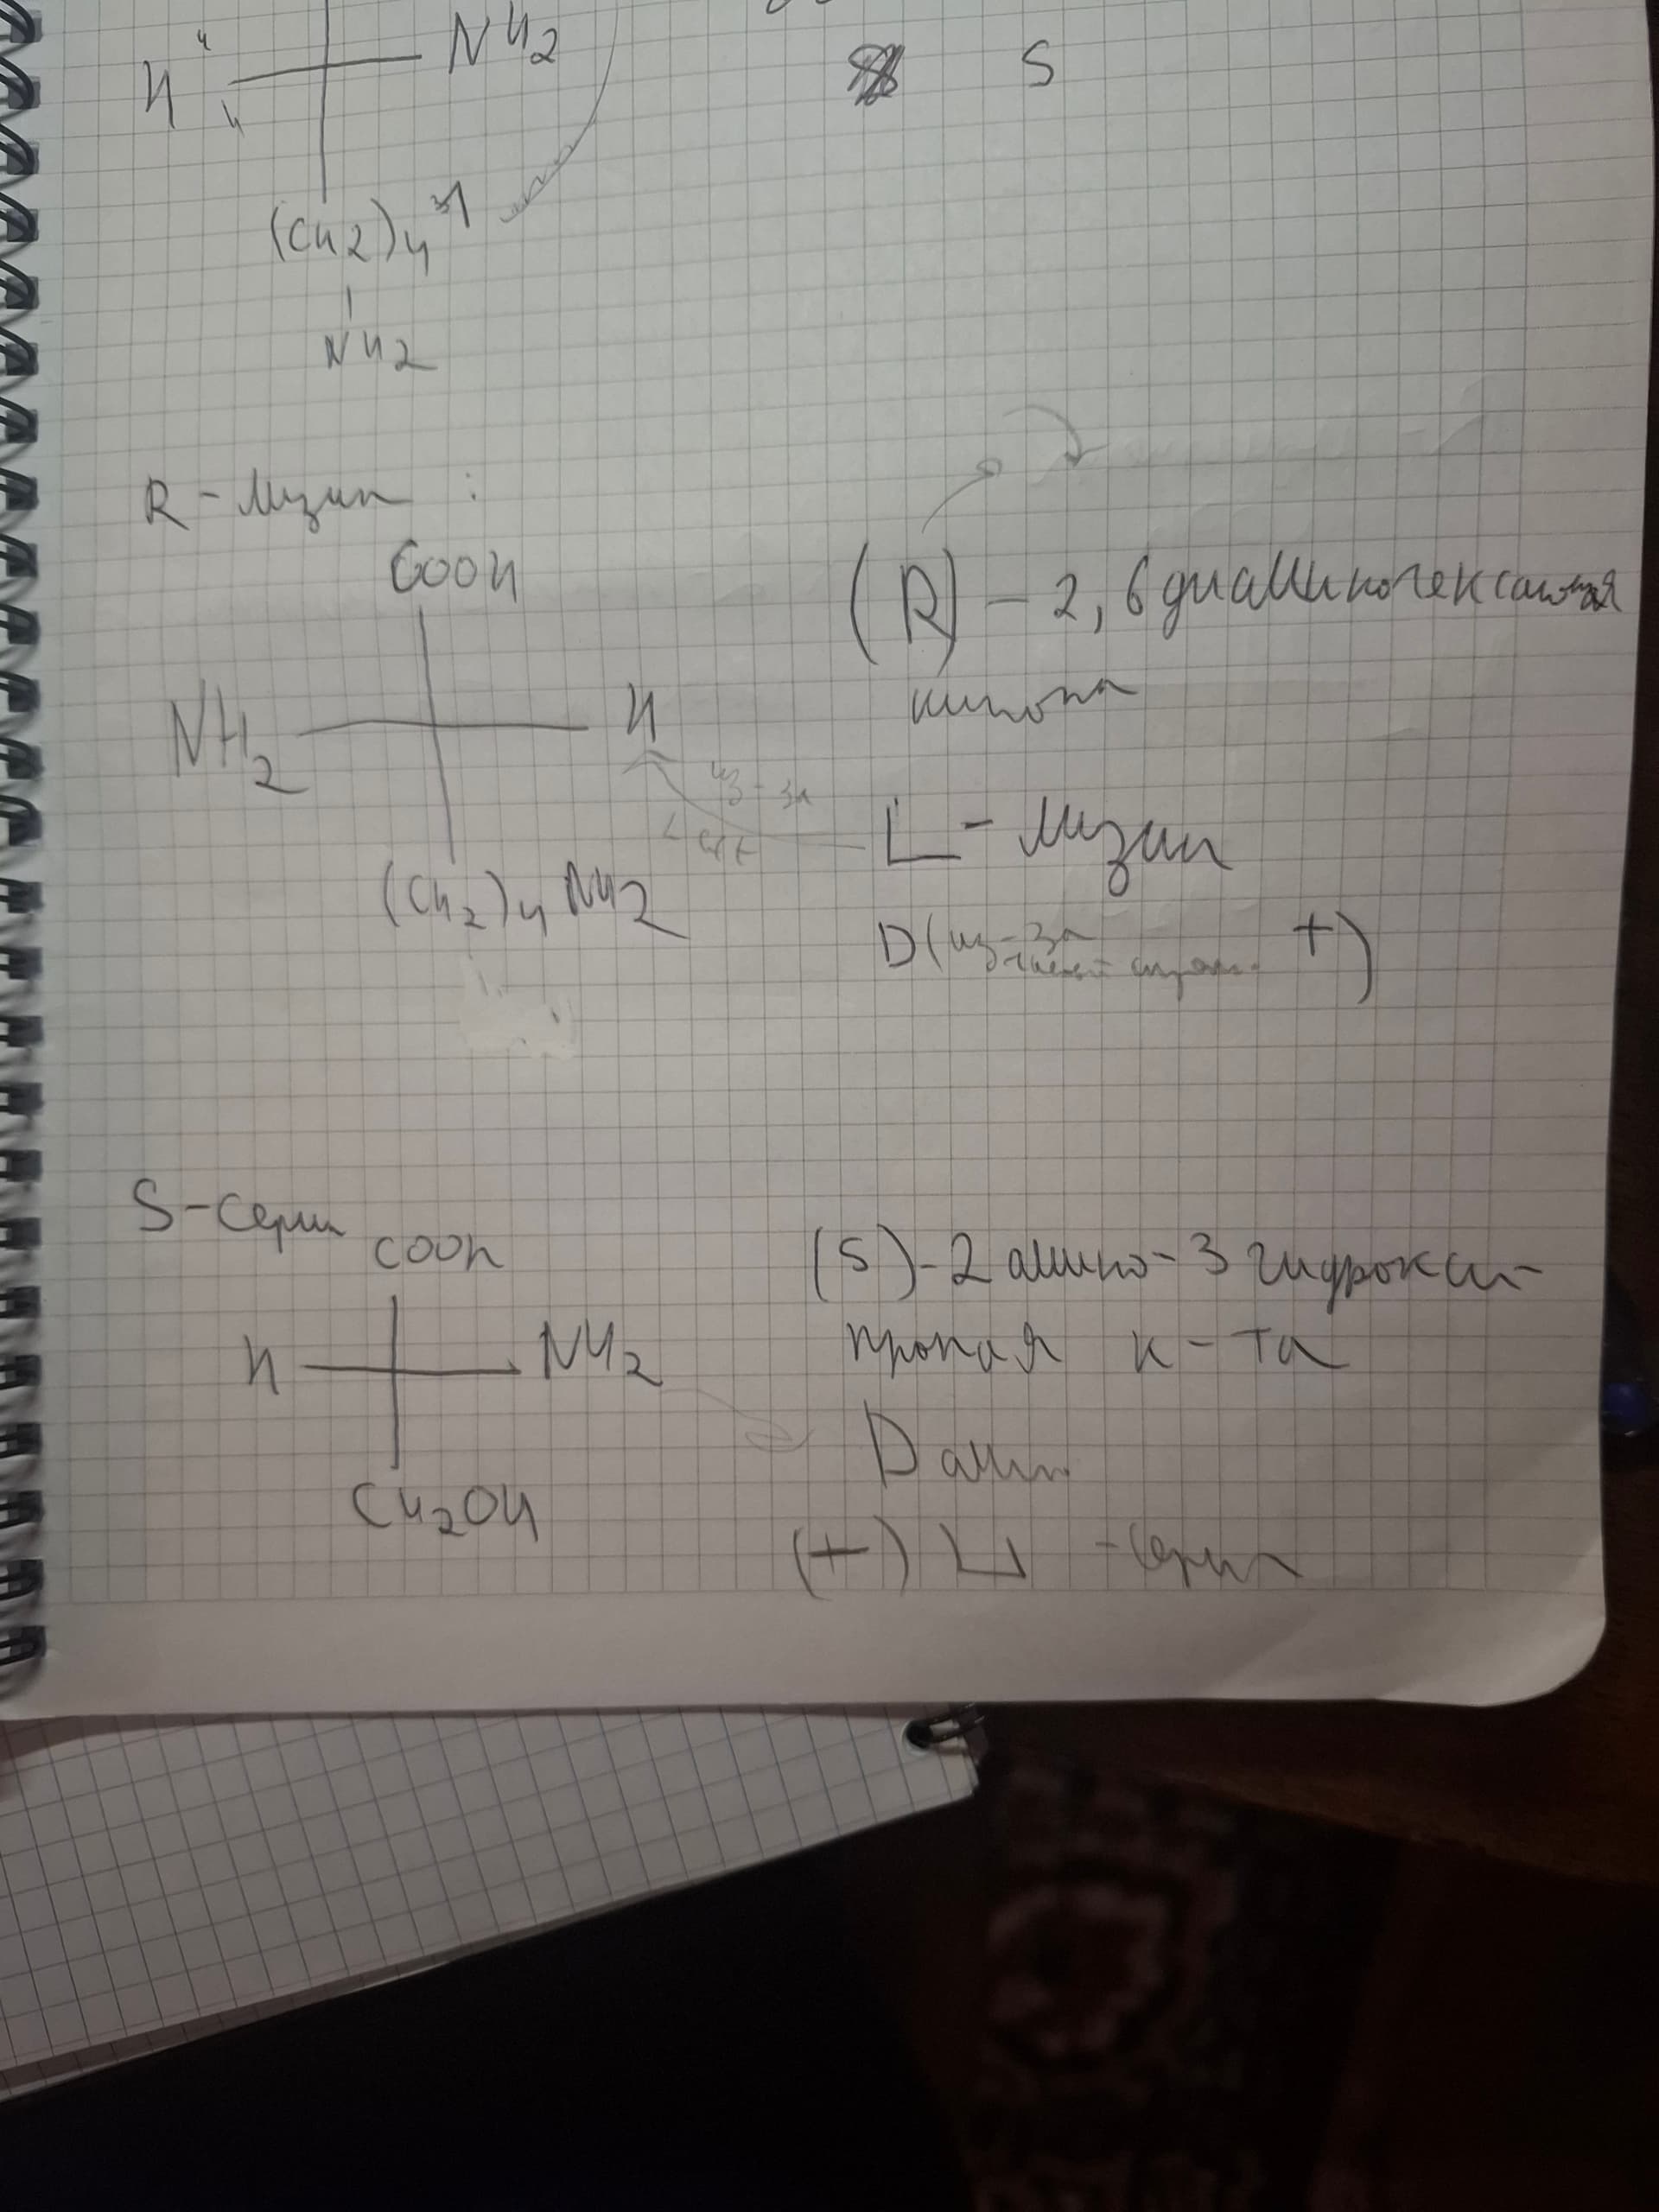 H
4
NH2
S
(CH2)4
3
NH2
R - лизин :
COOH
(R) - 2, 6 диаминогексановая
кислота
NH2
H
из-за
L - лизин
(CH2)4 NH2
D (из-за +)
S-серин
COOH
(S)-2 амино-3 гидрокси-
пропая к-та
H
NH2
D амин
CH2OH
(+) L -серин